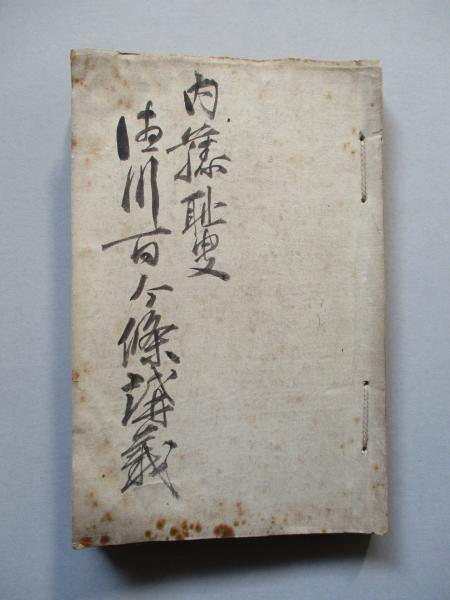 内藤耻叟
徳川百ケ條講義